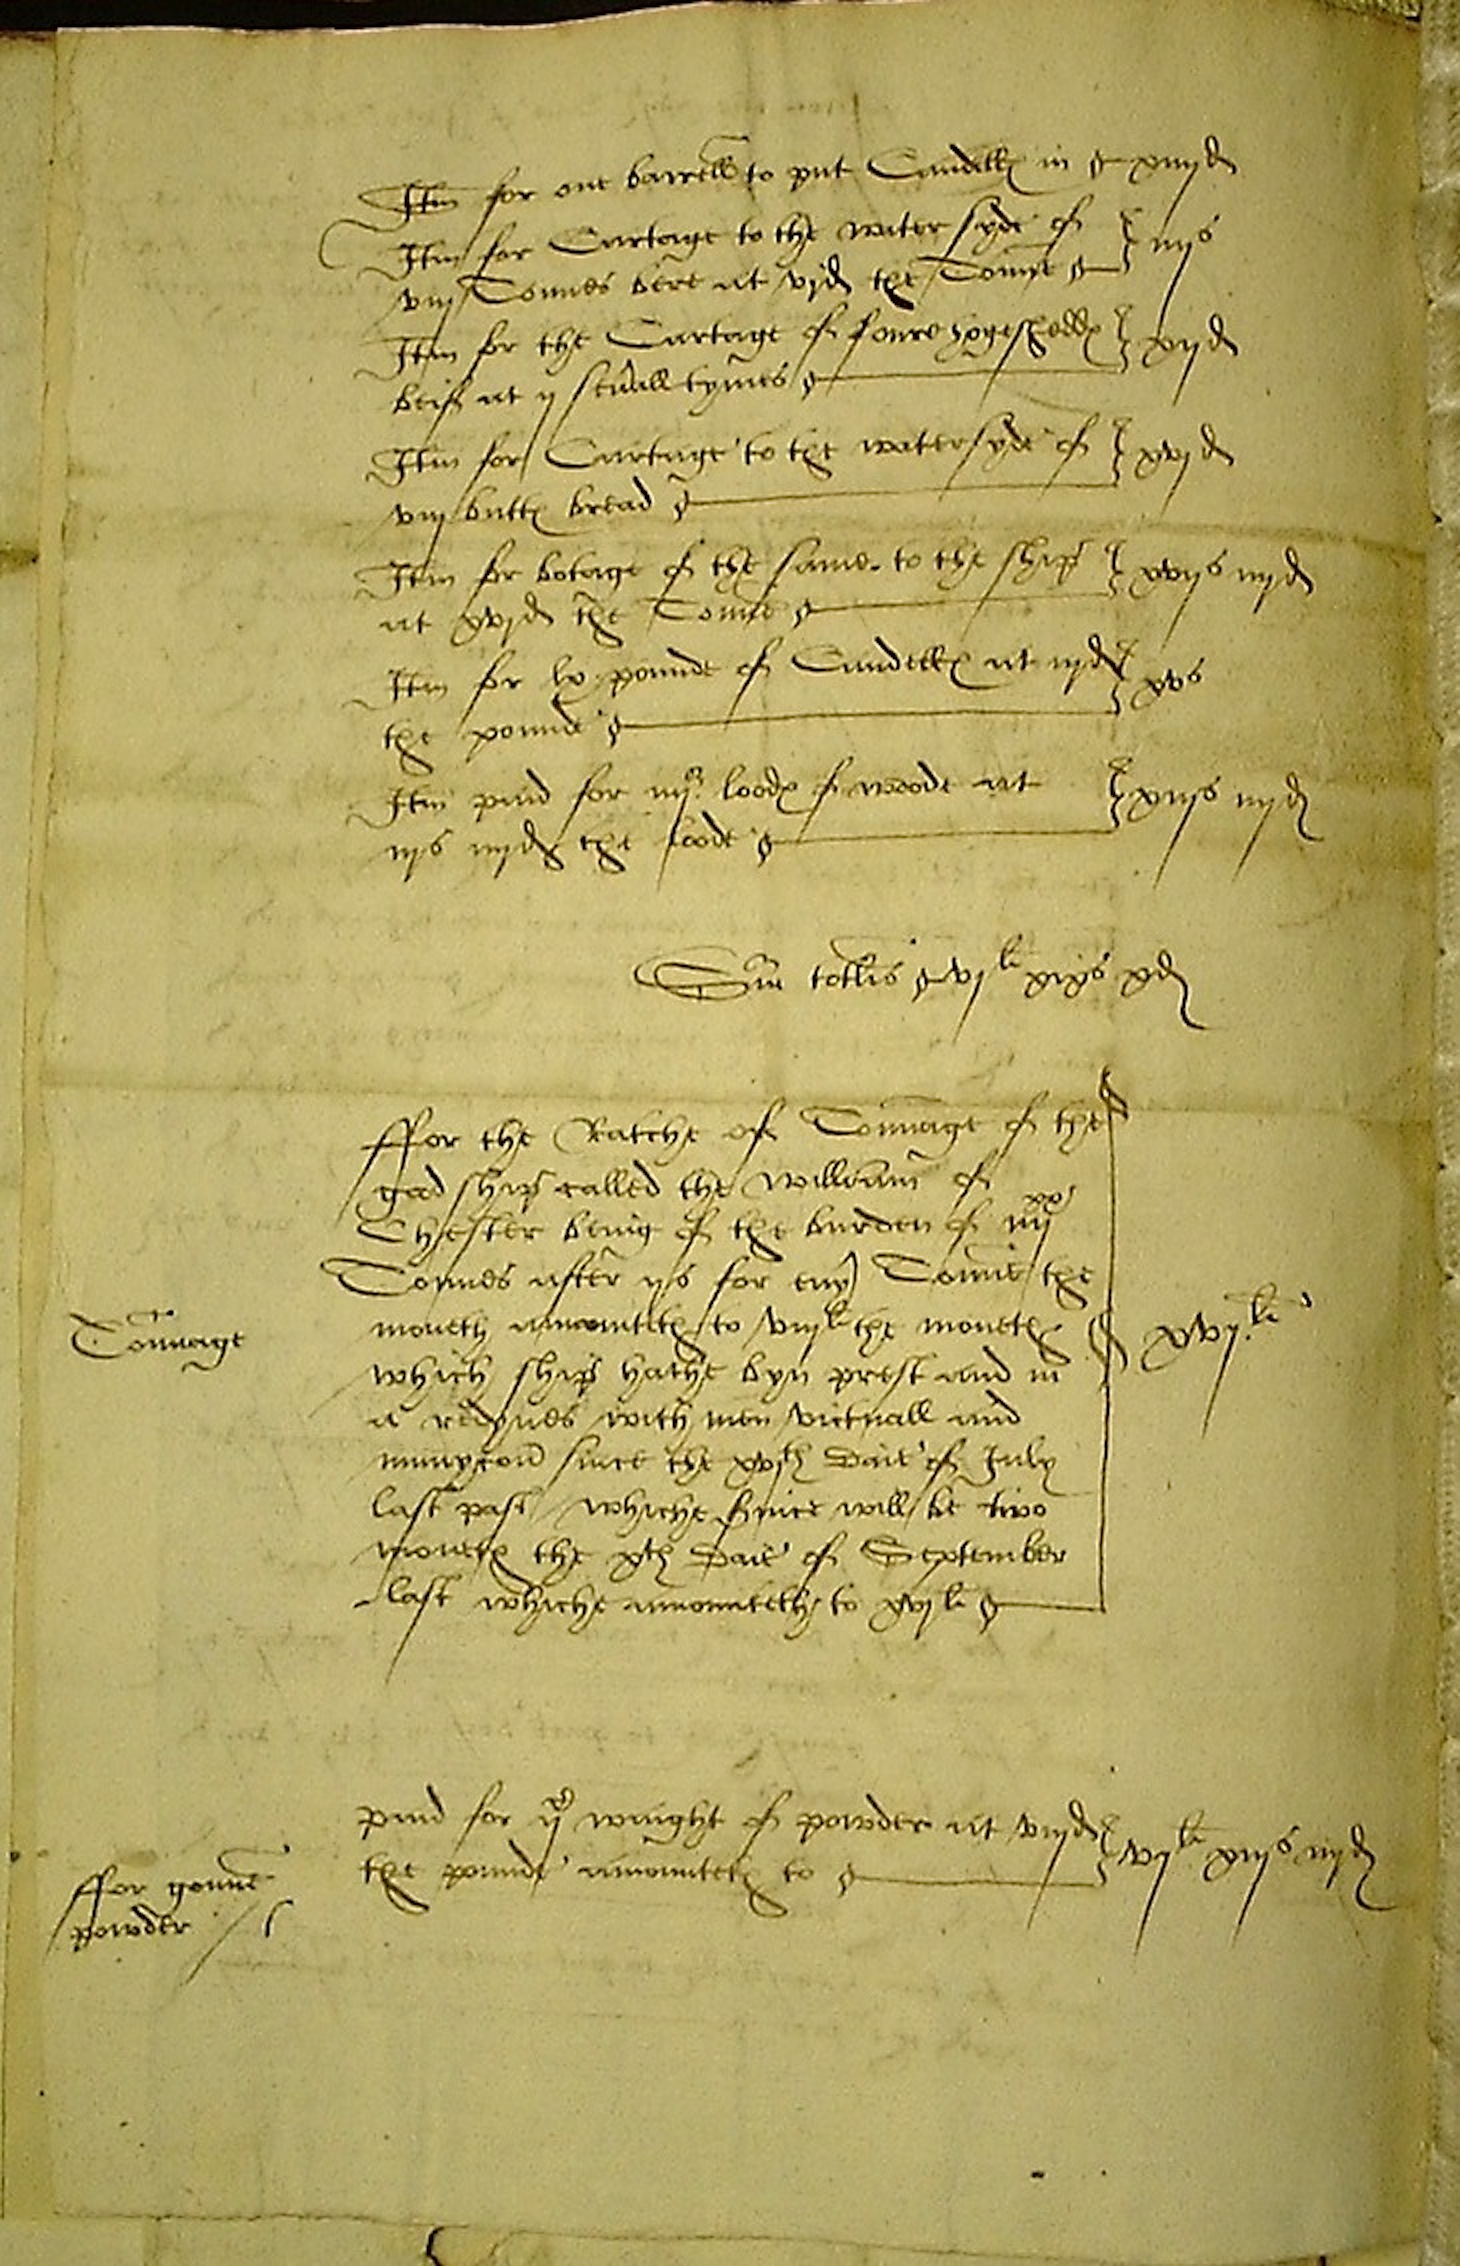 Itm for one barrell to put Candell in – xiiijd
Itm for Cartage to the water syde of
viij Tonnes bere at vjd the Tonne – iiijs
Itm for the Cartage of foure hogeshedd
beif at ij seu'all tymes – xijd
Itm for Cartage to the water syde of
viij butt bread – xvjd
Itm for botage of the same to the ship
at xvjd the Tonne – xvijs iiijd
Itm for lx pounde of Candell at iijd
the pounde – xvs
Itm paid for iiijor lood of woode at
iijs iiijd the loode – xiijs iiijd
Sm totlis – vjli xixs xd
Tonnage
ffor the Ratche of Tonnage of the
good ship called the William of
Chester being of the burden of iiijxx
Tonnes after ijs for eu'y Tonne the
moneth amountith to viijli the moneth
which ship hathe byn prest and in
a redynes with men victuall and
munycon since the xvjth daie of July
last past whiche since will be two
moneth the xth daie of September
last whiche amounteth to xvjli –
xvjli
ffor gonne
powder
paid for ijC waight of powder at viijd
the pounde amounteth to – vjli xiijs iiijd